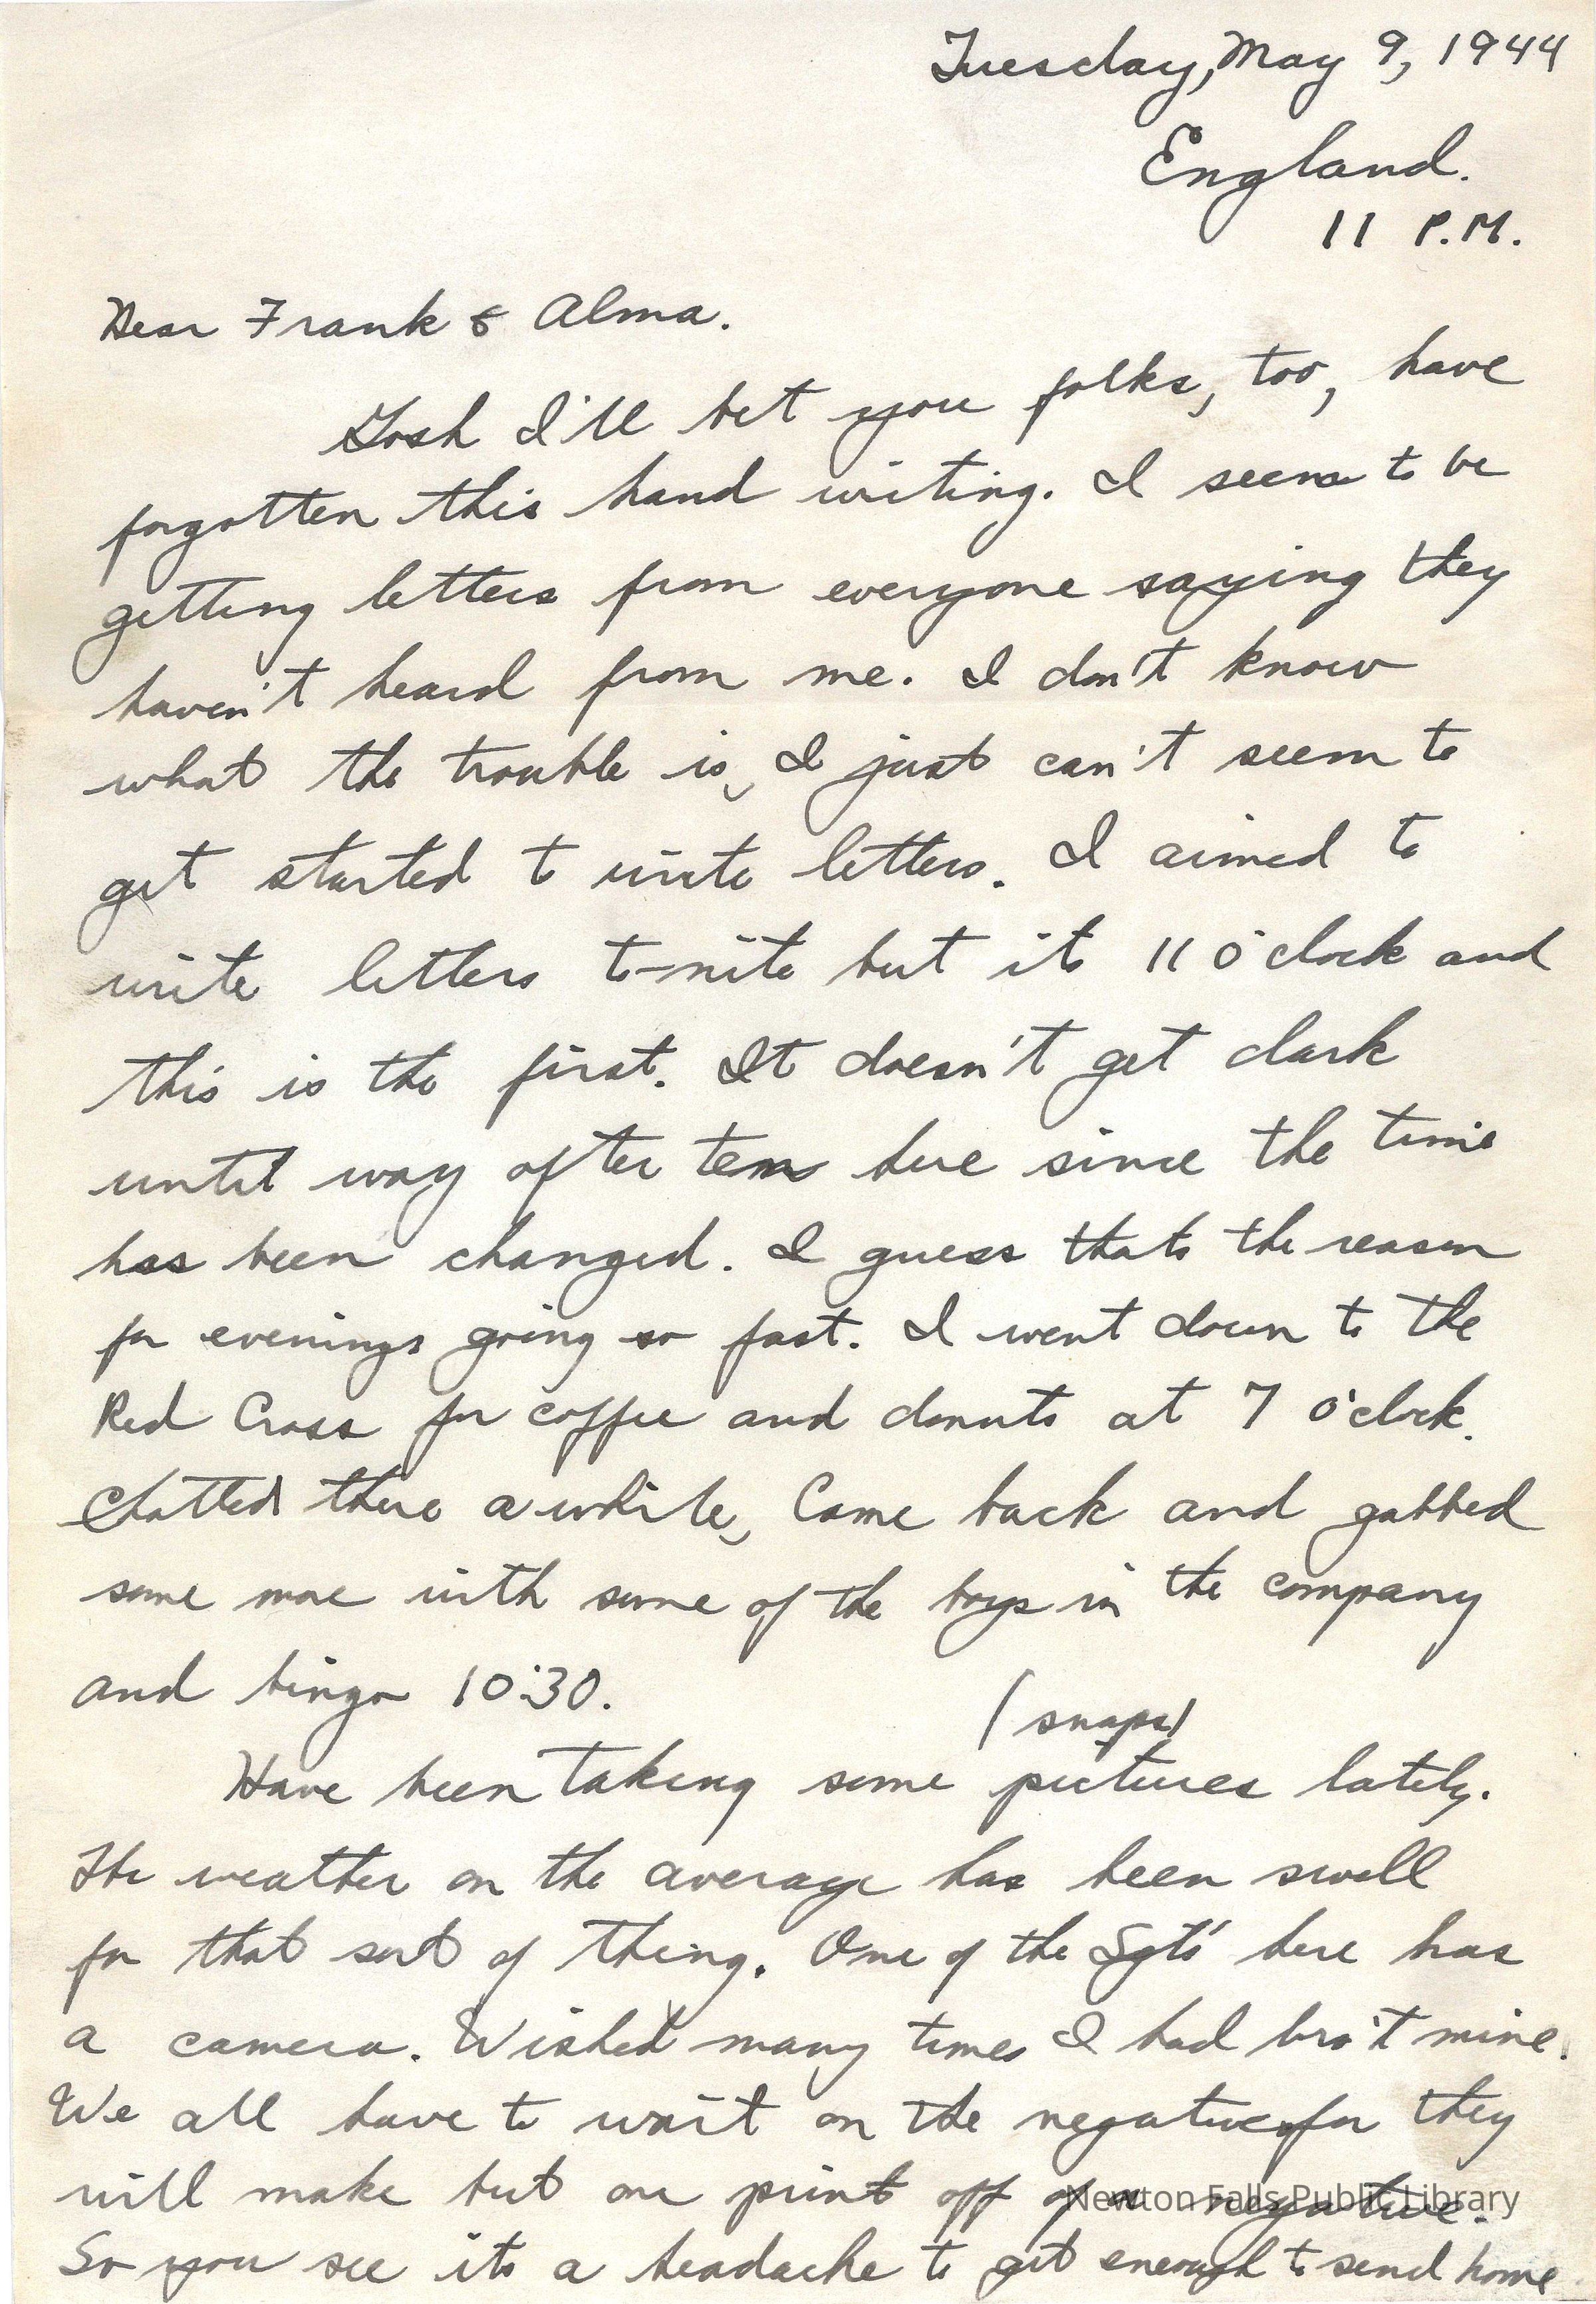 Tuesday, May 9, 1944
England.
11 P.M.
Dear Frank & Alma.
Gosh I'll bet you folks, too, have
forgotten this hand writing. I seem to be
getting letters from everyone saying they
haven't heard from me. I don't know
what the trouble is, I just can't seem to
get started to write letters. I aimed to
write letters to-nite but its 11 o'clock and
this is the first. It doesn't get dark
until way after ten here since the time
has been changed. I guess thats the reason
for evenings going so fast. I went down to the
Red Cross for coffee and donuts at 7 o'clock.
Chatted there a while, Came back and gabbed
some more with some of the boys in the company
and bingo 10:30.
(snaps)
Have been taking some pictures lately.
The weather on the average has been swell
for that sort of thing. One of the Sgts' here has
a camera. Wished many times I had bro't mine.
We all have to wait on the negatives for they
will make but one print off of a negative.
Newton Falls Public Library
So you see its a headache to get enough to send home